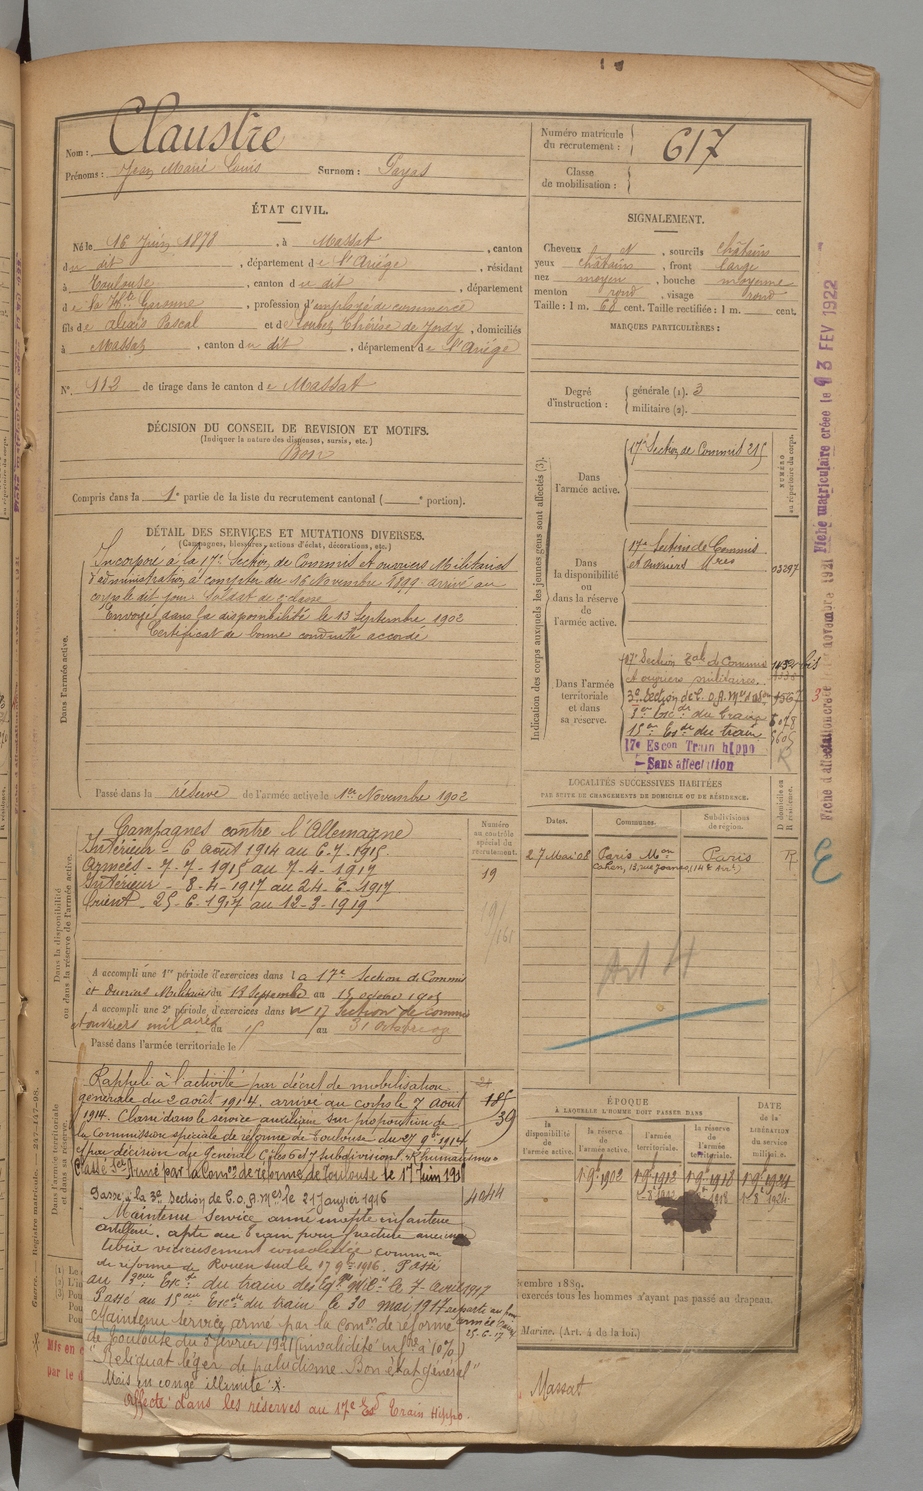 Nom : Claustre
Prénoms : Jean Marie Louis Surnom : Sayas
Numéro matricule du recrutement : 617
Classe de mobilisation :
ÉTAT CIVIL.
Né le 16 Juin 1878, à Massat, canton
du dit, département de l'Ariège, résidant
à Toulouse, canton du dit, département
de la Hte Garonne, profession d'employé de commerce
fils de Alexis Pascal et de Loubet Thérèse de Jordy, domiciliés
à Massat, canton du dit, département de l'Ariège
N° 112 de tirage dans le canton de Massat
DÉCISION DU CONSEIL DE REVISION ET MOTIFS.
(Indiquer la nature des dispenses, sursis, etc.)
Bon
Compris dans la 1e partie de la liste du recrutement cantonal ( e portion).
SIGNALEMENT.
Cheveux, sourcils châtains
yeux châtains, front large
nez moyen, bouche moyenne
menton rond, visage rond
Taille : 1 m. 68 cent. Taille rectifiée : 1 m. cent.
MARQUES PARTICULIÈRES :
Degré d'instruction : générale (1). 3
militaire (2).
DÉTAIL DES SERVICES ET MUTATIONS DIVERSES.
(Campagnes, blessures, actions d'éclat, décorations, etc.)
Dans l'armée active.
Incorporé à la 17e Section de Commis et ouvriers Militaires
d'administration à compter du 16 Novembre 1899 arrivé au
corps le dit jour Soldat de 2e classe
Envoyé dans la disponibilité le 13 Septembre 1902
Certificat de bonne conduite accordé
Passé dans la réserve de l'armée active le 1er Novembre 1902
Indication des corps auxquels les jeunes gens sont affectés (3).
NUMÉRO au répertoire du corps.
Dans l'armée active.
17e Section de Commis 215
Dans la disponibilité ou dans la réserve de l'armée active.
17e Section de Commis
et ouvriers Mres
03297
Dans l'armée territoriale et dans sa réserve.
17e Section tale de Commis
et ouvriers militaires.
3e Section de C.O.A.
1er Esc dr du train
15e Esc dr du train
17e Escon Train hippo
Sans affectation
R
Dans la disponibilité ou dans la réserve de l'armée active.
Campagnes contre l'Allemagne
Intérieur - 6 août 1914 au 6-7-1915.
Armées - 7-7-1915 au 7-4-1917
Intérieur - 8-4-1917 au 24-6-1917
Orient - 25-6-1917 au 12-3-1919
Numéro au contrôle spécial du recrutement.
19
A accompli une 1re période d'exercices dans la 17e Section de Commis
et Ouvriers Militaires du 18 Septembre au 15 octobre 1905
A accompli une 2e période d'exercices dans la 17 Section de commis
et ouvriers militaires du au 31 octobre
Passé dans l'armée territoriale le
LOCALITÉS SUCCESSIVES HABITÉES
PAR SUITE DE CHANGEMENTS DE DOMICILE OU DE RÉSIDENCE.
Dates. Communes. Subdivisions de région. D domicile ou R résidence.
27 Mai 08 Paris Mon Paris R.
Cahen, 13, rue Joanes, (14e Arrt)
Art 4
ÉPOQUE
À LAQUELLE L'HOMME DOIT PASSER DANS
DATE de la LIBÉRATION du service militaire.
la disponibilité de l'armée active.
la réserve de l'armée active.
l'armée territoriale.
la réserve de l'armée territoriale.
1 9bre 1902 1 9bre 1912 1 9bre 1918 1 9bre 1924
Dans l'armée territoriale et dans sa réserve.
Rappelé à l'activité par décret de mobilisation
générale du 2 août 1914. arrivé au corps le 7 août
1914. Classé dans le service auxiliaire sur proposition de
la Commission spéciale de réforme de Toulouse du 27 9bre 1914
et par décision du Général Ct les 6 et 7 subdivisions. "Rhumatismes"
Classé Sce Armé par la Comon de réforme de Toulouse le 17 Juin 191
Passé à la 3e Section de C.O.A. le 21 Janvier 1916
Maintenu service armé inapte infanterie
artillerie, apte au train pour fracture ancienne
tibia vicieusement consolidée common
de réforme de Rouen Sud le 17 9bre 1916. Passé
au Esc dr du train des Eq. Mil. le 7 avril 1917
Passé au 15ème Esc dr du train le 30 mai 1917
Maintenu service armé par la Comon de réforme
de Toulouse du 5 février 1921 (invalidité infre à 10%)
"Reliquat léger de paludisme. Bon état général"
Mis en congé illimité.
Affecté dans les réserves au 17e Ed Train Hippo.
185
39
4044
Fiche matriculaire créée le 3 FEV 1922
Fiche d'affectation créée novembre 1921
Guerre. — Registre matricule. — 247-147-98.
décembre 1889.
exercés tous les hommes n'ayant pas passé au drapeau.
Marine. (Art. 4 de la loi.)
Massat
Mis en
par le d